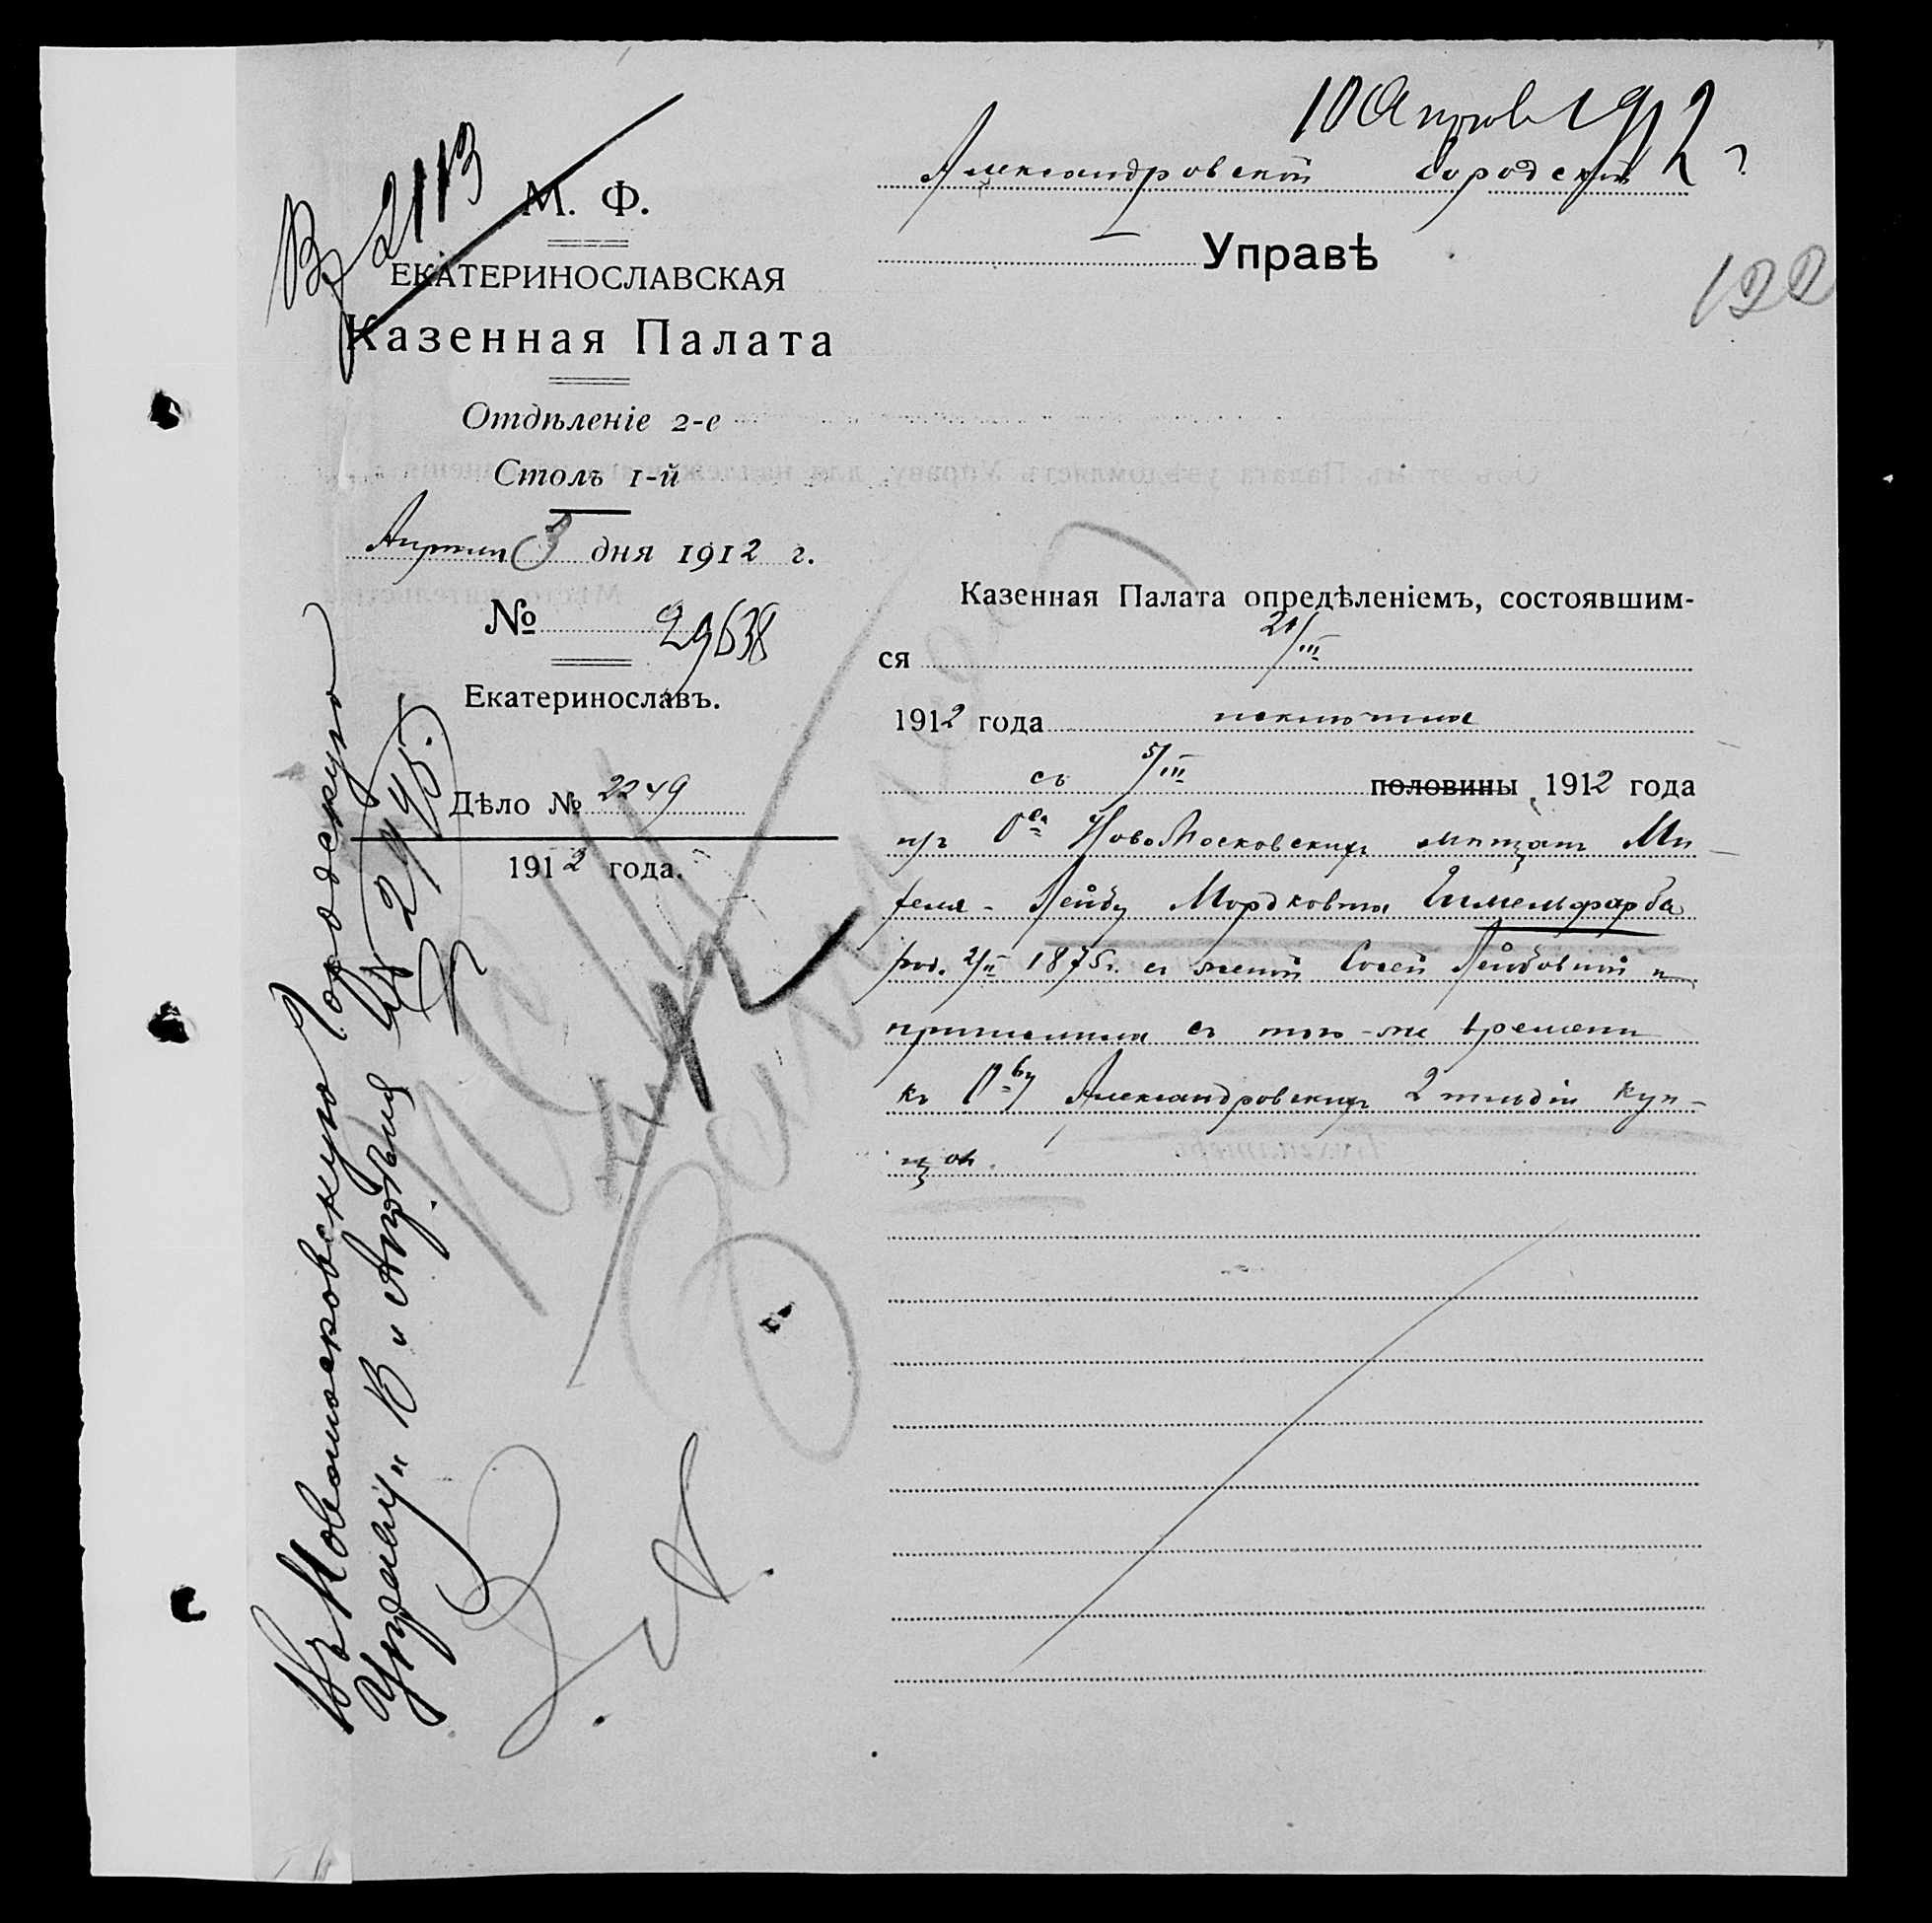 10 Апрѣля 1912 г
Вх 2113
122
Александровской Городской
Управѣ
М. Ф.
ЕКАТЕРИНОСЛАВСКАЯ
Казенная Палата
Отдѣленіе 2-е
Столъ 1-й
Апрѣля 3 дня 1912 г.
№ 29638
Екатеринославъ.
Дѣло № 2249
1912 года.
Казенная Палата опредѣленіемъ, состоявшим-
ся 21/III
1912 года исключила
съ 5/III половины 1912 года
изъ О-ва НовоМосковскихъ мѣщанъ Ми-
хеля-Лейбу Мордковича Гимельфарба
род. 2/II 1875г. съ женой Лейбовной и
причислила съ того-же времени
къ О-ву Александровскихъ 2 гильдіи куп-
цовъ.
Въ Новомосковскую Городскую
Управу. В " Апрѣля
№ 2795.